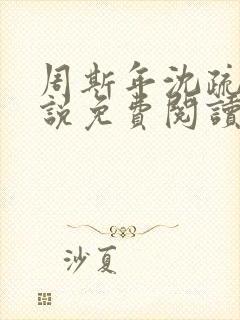 周斯年沈疏
說免費閱讀
沙夏